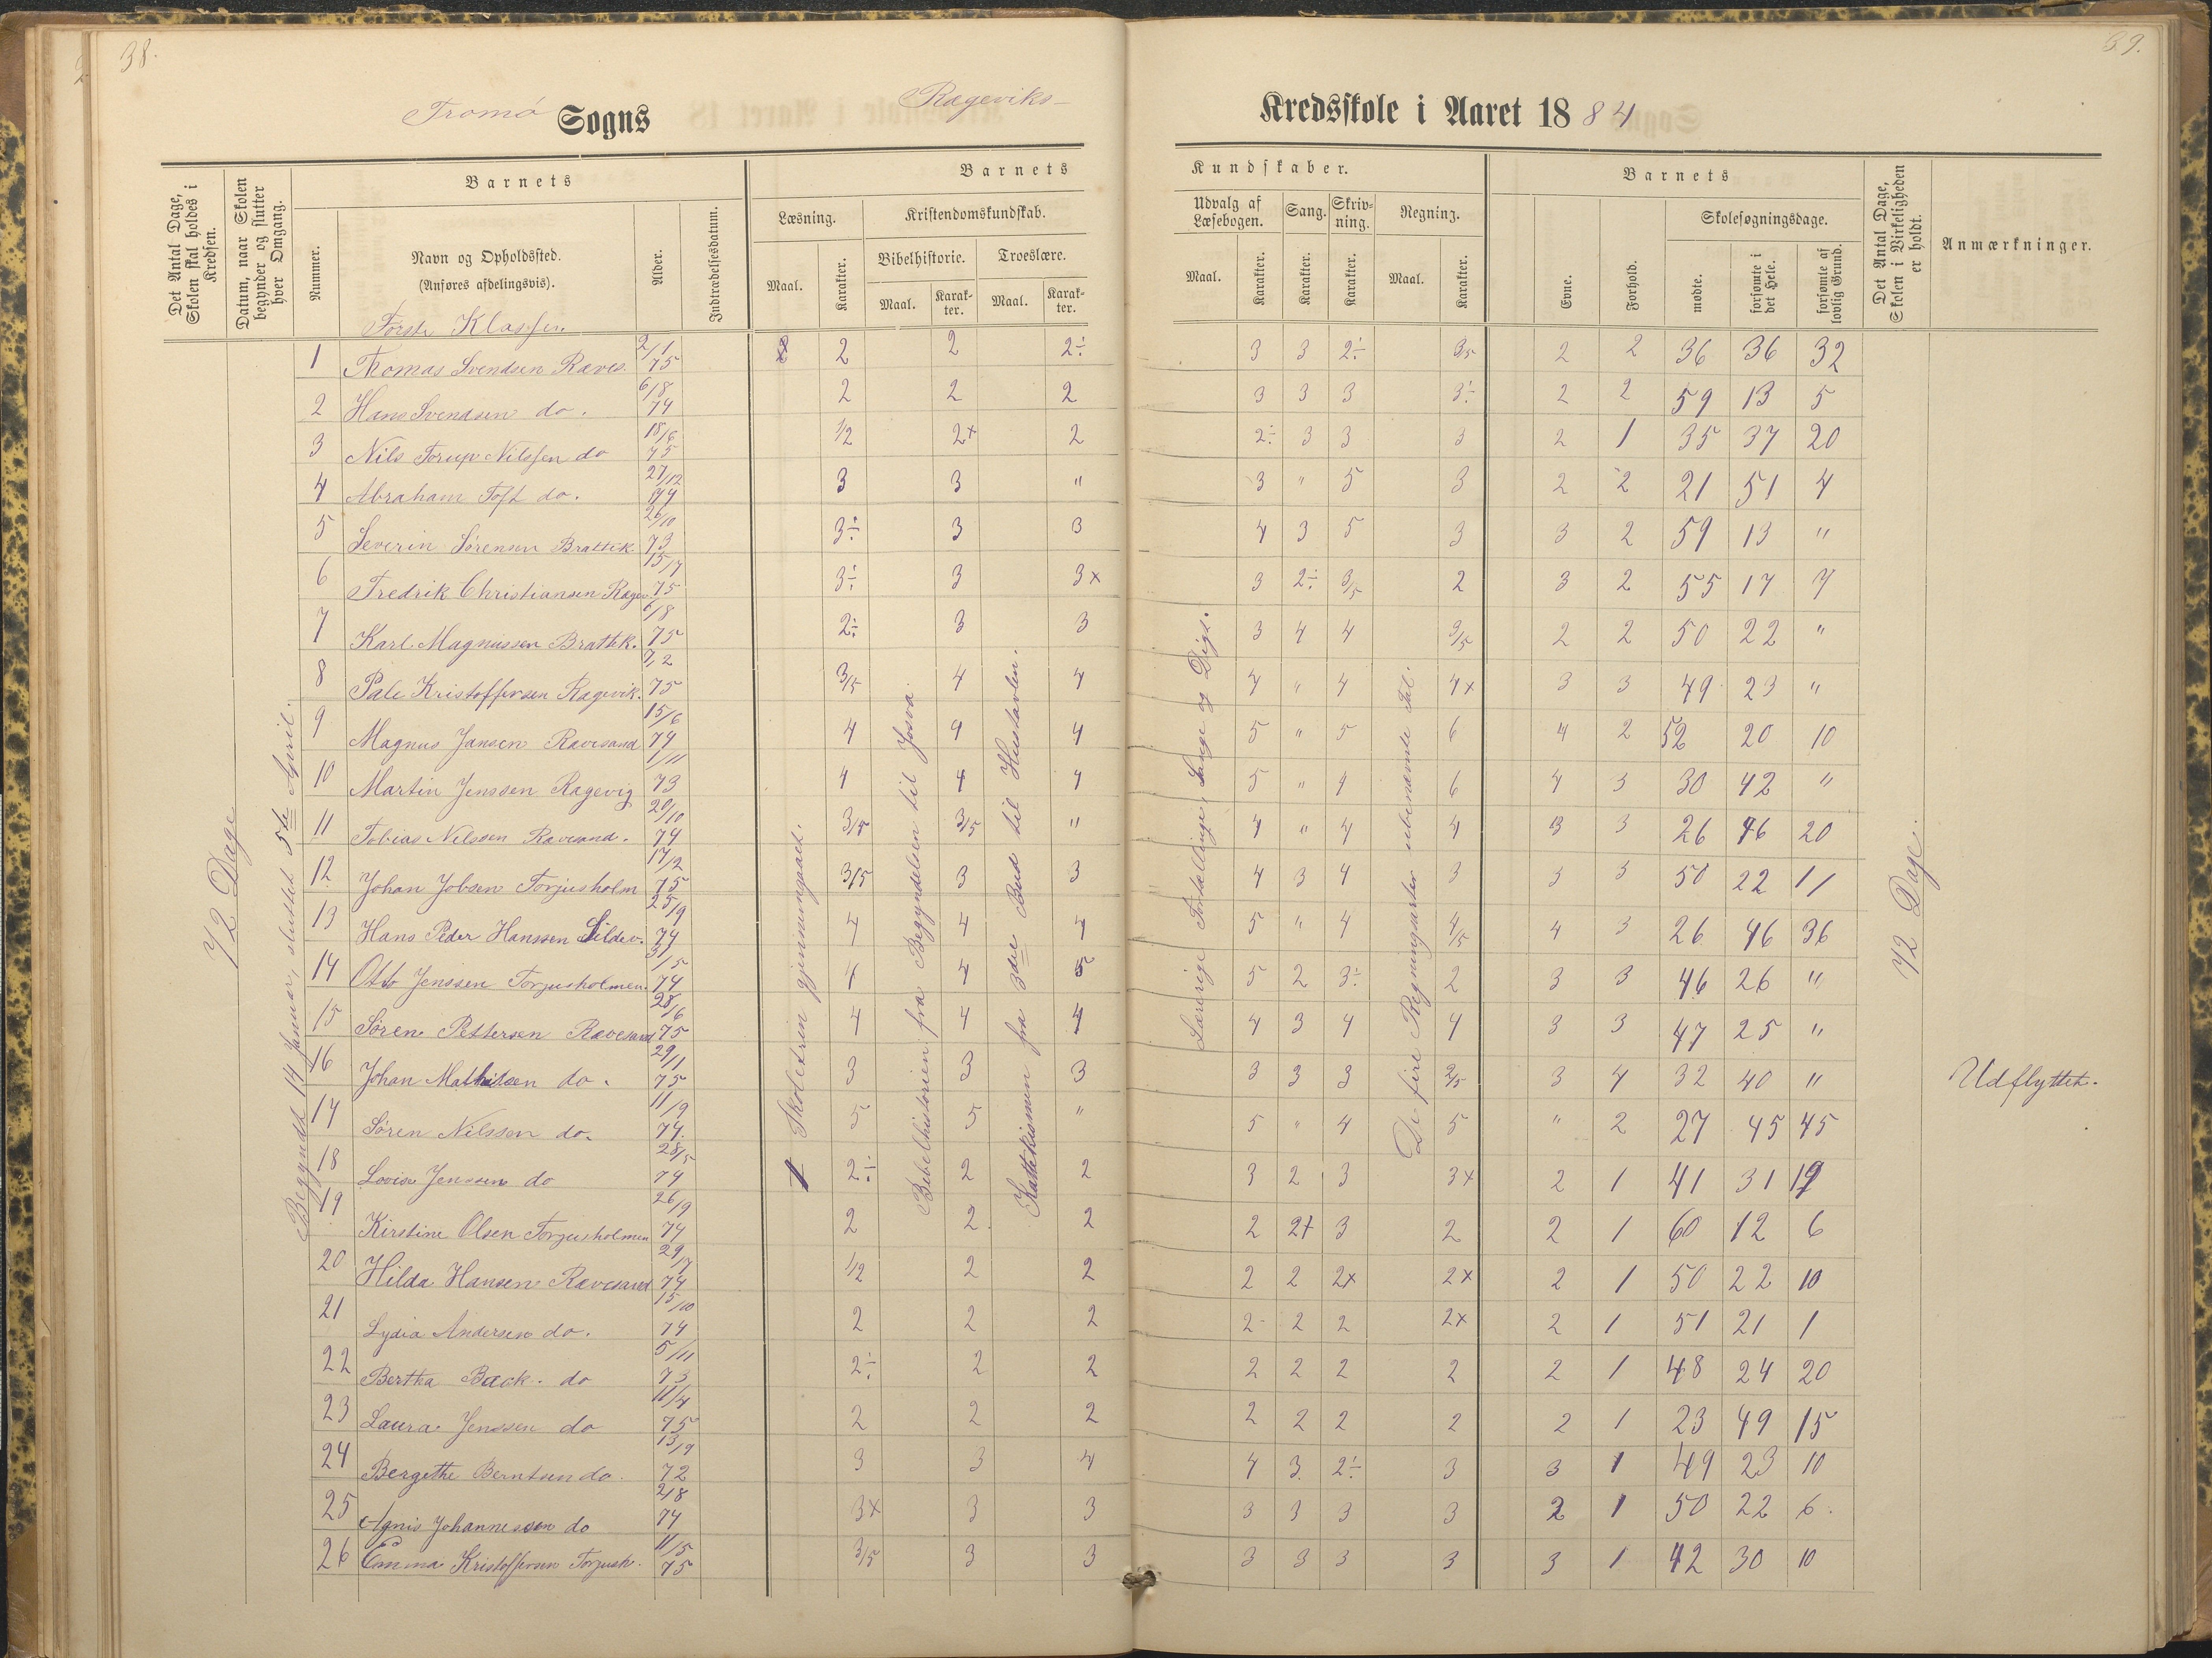 38.
39.
Tromø Sogns Rægeviks- Kredsskole i Aaret 1884
Det Antal Dage, Skolen skal holdes i Kredsen.
Datum, naar Skolen begynder og slutter hver Omgang.
Barnets
Nummer.
Navn og Opholdssted.
(Anføres afdelingsvis).
Alder.
Indtrædelsesdatum.
Barnets Kundskaber.
Læsning.
Maal.
Karakter.
Kristendomskundskab.
Bibelhistorie.
Maal.
Karakter.
Troeslære.
Maal.
Karakter.
Udvalg af Læsebogen.
Maal.
Karakter.
Sang.
Karakter.
Skrivning.
Karakter.
Regning.
Maal.
Karakter.
Barnets
Evne.
Forhold.
Skolesøgningsdage.
mødte.
forsømte i det Hele.
forsømte af lovlig Grund.
Det Antal Dage, Skolen i Virkeligheden er holdt.
Anmærkninger.
Første Klasse.
72 Dage
Begyndt 14 Januar, sluttet 5te April.
Skoletrin gjennemgaaet.
Bibelhistorien fra Begyndelsen til Josva.
Katekismen fra 3die Bud til Hustavlen.
Lærerige Fortællinger, Sange og Digt.
De fire Regningsarter ubenævnte Tal.
72 Dage.
1 Thomas Svendsen Raves. 2/1 75 2 2 2÷ 3 3 2÷ 3/5 2 2 36 36 32
2 Hans Svendsen do. 6/8 74 2 2 2 3 3 3 3÷ 2 2 59 13 5
3 Nils Torup Nilssen do 18/6 75 1/2 2+ 2 2÷ 3 3 3 2 1 35 37 20
4 Abraham Toft do. 27/12 74 3 3 " 3 " 5 3 2 2 21 51 4
5 Severin Sørensen Brattek. 26/10 73 3÷ 3 3 4 3 5 3 3 2 59 13 "
6 Fredrik Christiansen Ragev. 15/7 75 3÷ 3 3x 3 2÷ 3/5 2 3 2 55 17 7
7 Karl Magnussen Brattk. 6/8 75 2÷ 3 3 3 4 4 3/5 2 2 50 22 "
8 Pale Kristoffersen Ragevik. 7/2 75 3/5 4 4 4 " 4 4x 3 3 49 23 "
9 Magnus Jansen Ravesand 15/6 74 4 4 4 5 " 5 6 4 2 52 20 10
10 Martin Jenssen Ragevig 1/11 73 4 4 4 5 " 4 6 4 3 30 42 "
11 Tobias Nilssen Ravesand. 20/10 74 3/5 3/5 " 4 " 4 4 3 3 26 46 20
12 Johan Jobsen Torjusholm 17/2 75 3/5 3 3 4 3 4 3 3 3 50 22 11
13 Hans Peder Hanssen Sildev. 25/9 74 4 4 4 5 " 4 4/5 4 3 26 46 36
14 Otto Jenssen Torjusholmen. 31/5 74 4 4 5 5 2 3÷ 2 3 3 46 26 "
15 Søren Pettersen Ravesand 28/6 75 4 4 4 4 3 4 4 3 3 47 25 "
16 Johan Mathisen do. 29/1 75 3 3 3 3 3 3 2/5 3 4 32 40 " Udflyttet.
17 Søren Nilssen do. 11/9 74. 5 5 " 5 " 4 5 " 2 27 45 45
18 Lovise Jenssen do 28/5 74 1 2÷ 2 2 3 2 3 3x 2 1 41 31 19
19 Kirstine Olsen Torjusholmen 26/9 74 2 2 2 2 2+ 3 2 2 1 60 12 6
20 Hilda Hansen Ravesand 29/7 74 1/2 2 2 2 2 2x 2x 2 1 50 22 10
21 Lydia Andersen do. 15/10 74 2 2 2 2- 2 2 2x 2 1 51 21 1
22 Bertha Back. do 5/11 73 2÷ 2 2 2 2 2 2 2 1 48 24 20
23 Laura Jenssen do 11/4 75 2 2 2 2 2 2 2 2 1 23 49 15
24 Bergethe Berntsen do. 13/9 72 3 3 4 4 3 2÷ 3 3 1 49 23 10
25 Agnis Johannessen do 2/8 74 3x 3 3 3 3 3 3 2 1 50 22 6.
26 Emma Kristoffersen Torjush. 11/5 75 3/5 3 3 3 3 3 3 3 1 42 30 10